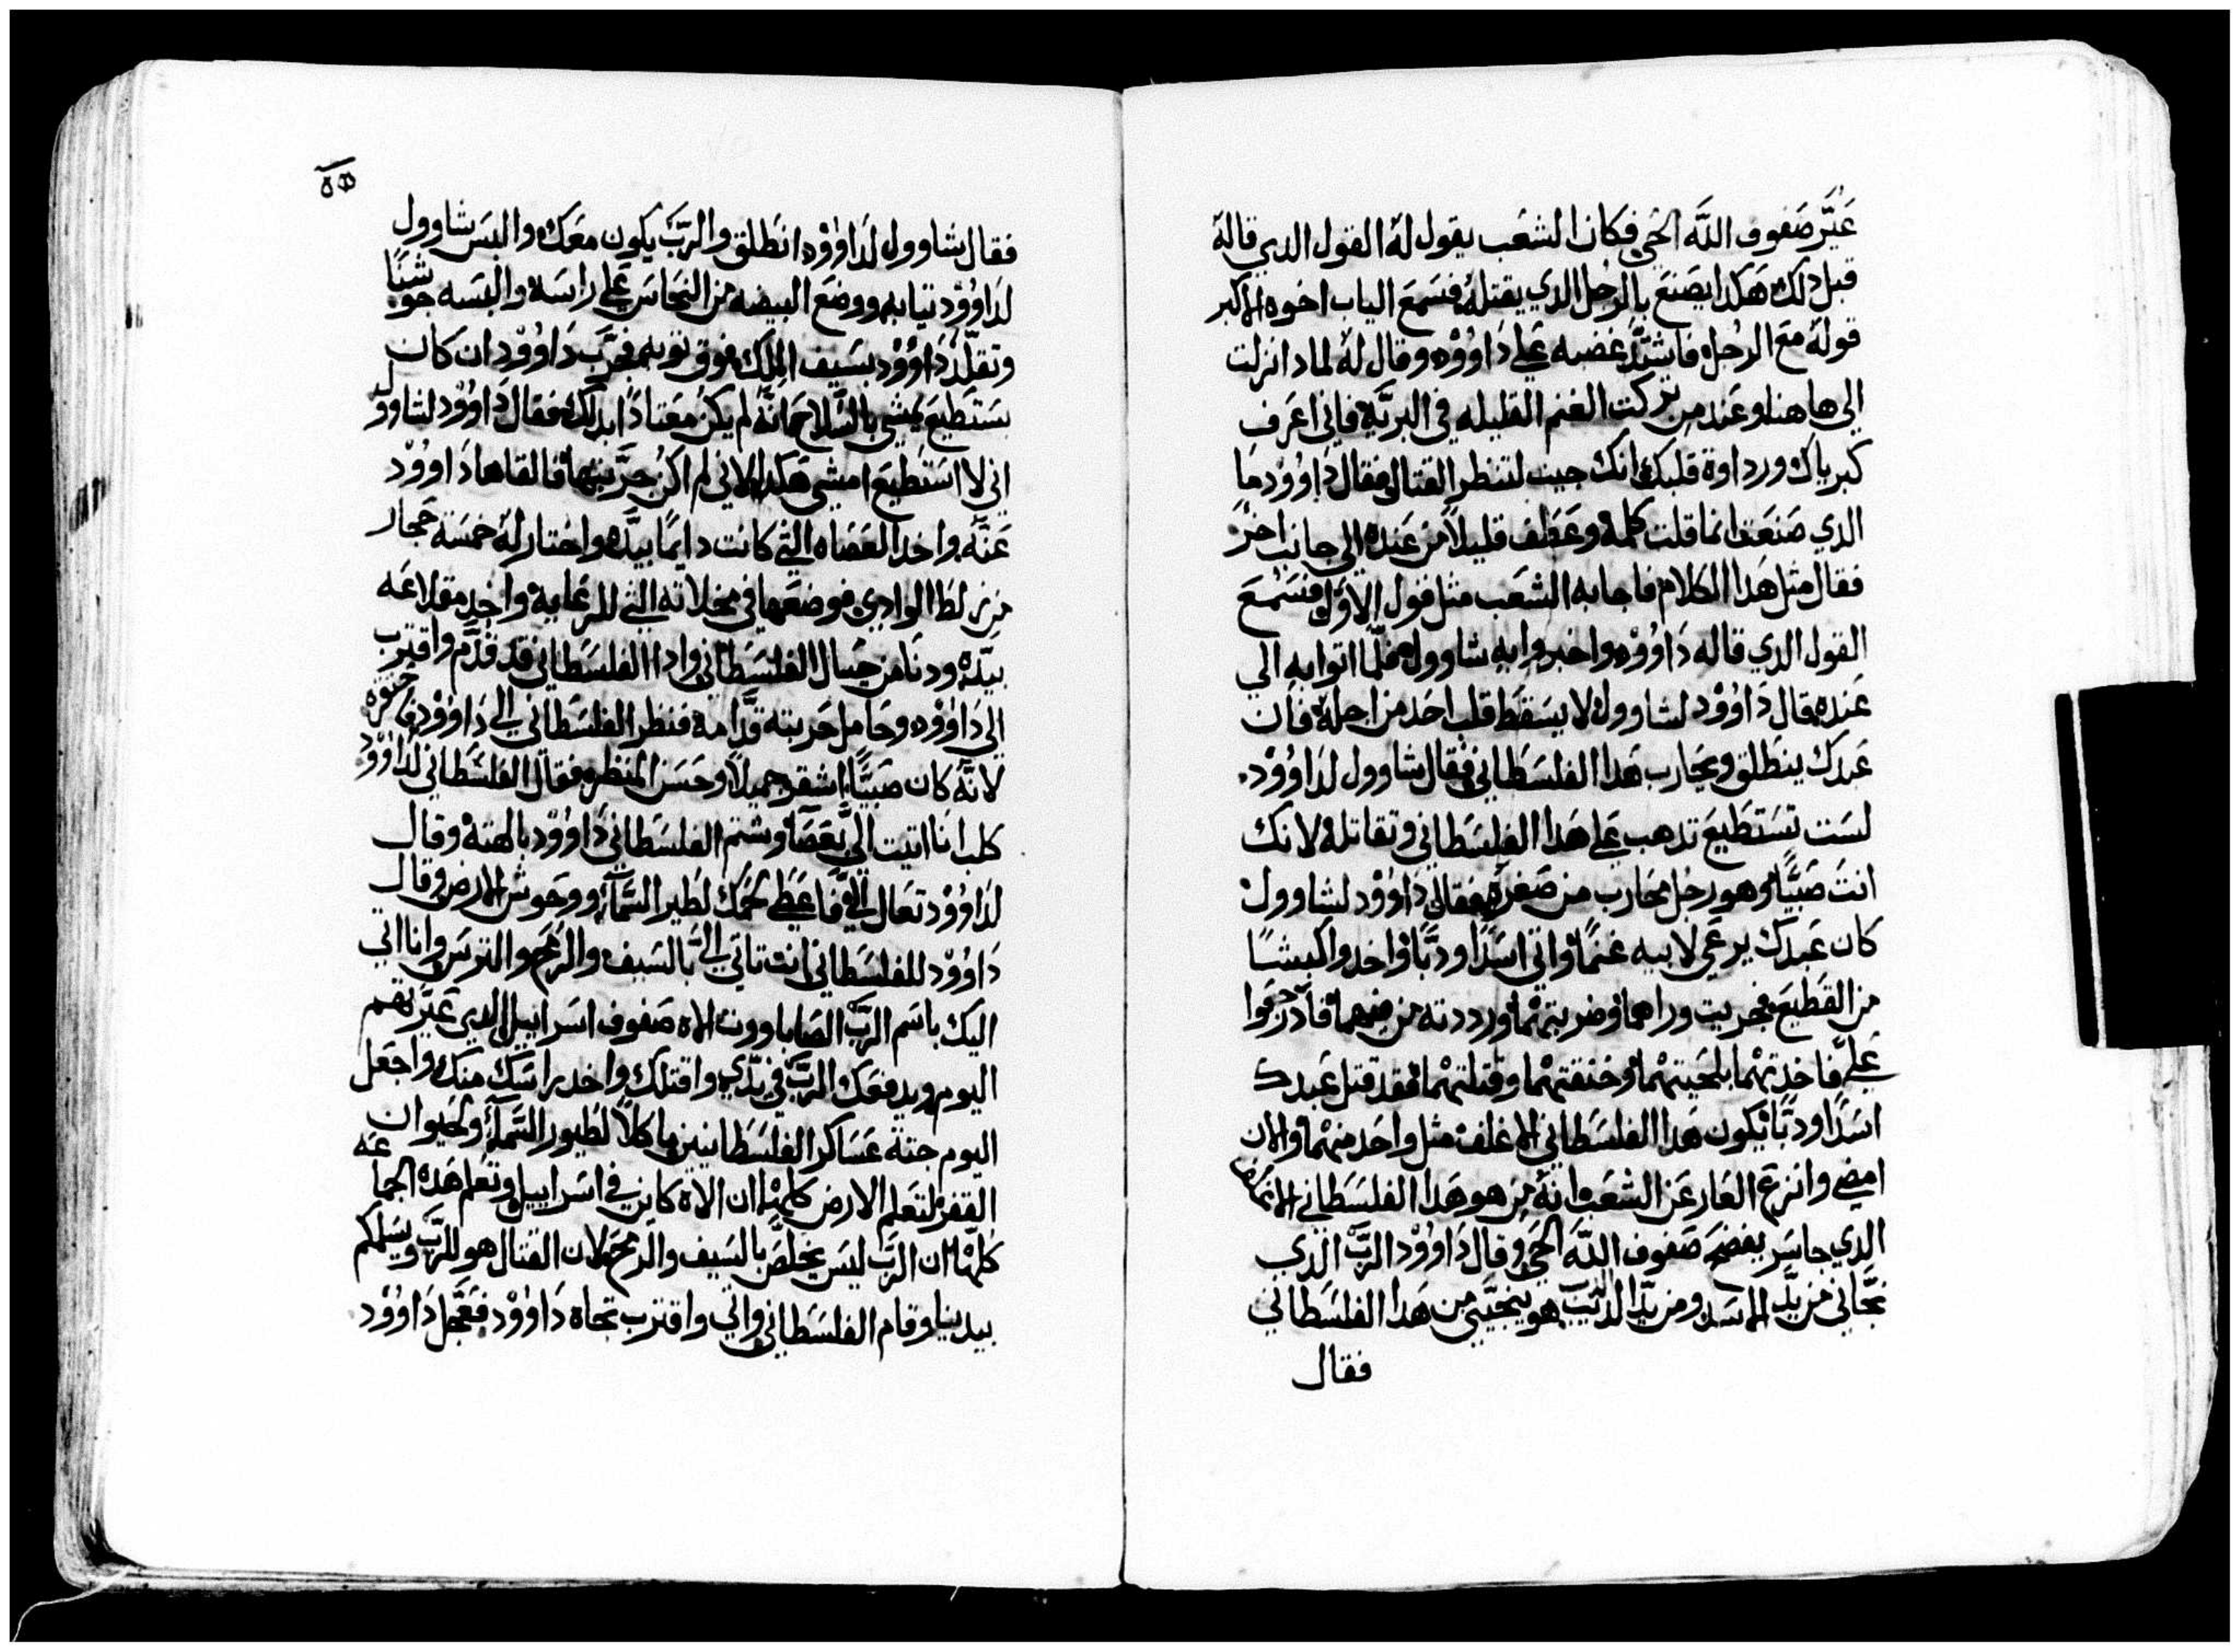 عَيَّر صَفوف اللَّه الحَي فكان الشعَب يقول لهُ القول الدي قالهُ
قبل دلك هَكدا يصَنعَ بالرجل الدي يقتلهُ فسَمعَ الياب اخوه الاكبر
قولهُ معَ الرجل فاشتَّد غضبه عَلى دَاوُوْد وقال لهُ لمادا نزلت
الي هاهنا وعَند من تركت الغنم القليله في البريَّة فاني اعَرف
كبرياك ورداوة قلبك انك جيت لتنظر القتال فقال دَاوُوْد مَا
الدي صَنعَت انما قلت كلمة وعَطف قليلاً من عَنده الي جانب اخرَ
فقال مثل هَدا الكلام فاجابه الشعَب مثل قول الاوَّل فسَمعَ
القول الدي قاله دَاوُوْد واخبروا به شاوول فلَّما اتوا به الي
عَنده قال دَاوُوْد لشاوول لا يسَقط قلب احَد من اجله فان
عَبدك ينطلق ويحَارب هَدا الفلسَطاني فقال شاوول لدَاوُوْد
لسَت تسَتطيعَ تدهب عَلى هَدا الفلسَطاني وتقاتله لانك
انت صَبيًّا وهو رجل محَارب من صَغره فقال دَاوُوْد لشاوول
كان عَبدك يرعَي لابيه غنمًا واتي اسَدًا ودبًّا واخدوا كبشًا
من القطيعَ فجريت وراهما وضربتهما ورددته من فمهما فادركوا
عَليَّ فاخدتهمْا بلحَيتهمْا وخنقتهمْا وقتلتهمْا فقد قتل عَبدك
اسَدًا ودبًّا يكون هَدا الفلسَطاني الاغلف مثل واحَد منهمْا والان
امضي وانزعَ العَار عَن الشعَب انهُ من هو هَدا الفلسَطاني
الدي جاسَر يفضحَ صَفوف اللَّه الحَي وقال دَاوُوْد الربَّ الدي
نجَّاني من يدَّ الاسَد ومن يدَّ الدبّ هو ينجيَّني من هَدا الفلسَطاني
فقال
فقال شاوول لدَاوُوْد انطلق والربَّ يكون معَك والبسَ شاوول
لدَاوُوْد تيابه ووضعَ البيضه من النحَاسَ عَلى راسَه والبسَه جوشنًا
وتقلَّد دَاوُوْد بسَيف الملك فوق توبه فجرَّب دَاوُوْد ان كان
يسَتطيعَ يمشي بالسَّلاحَ انَّهُ لم يكن معَتادًا بدلك فقال دَاوُوْد لشاوول
اني لا اسَتطيعَ امشي هَكدا لاني لم اكن جرَّبتها فالقاها دَاوُوْد
عَنَّه واخد العَصَاه التي كانت دايمًا بيدَّه واختار لهُ خمسَة حَجار
من زلط الوادي فوضعَها في مخلاته التي للرعَاية واخد مقلاعَه
بيدَّه ودنا من حَيال الفلسَطاني وادا الفلسَطاني قد قدَّم واقترب
الي دَاوُوْد وحَامل حَربته قدَّامهُ فنظر الفلسَطاني الي دَاوُوْد فاحَتقره
لانَّهُ كان صَبيًّا اشقر جميلاً وحَسَن المنظر فقال الفلسَطاني لدَاوُوْد
كلب انا اتيت اليَّ بعَصَا وشتم الفلسَطاني دَاوُوْد بالهتهُ وقال
لدَاوُوْد تعَال اليَّ فاعَطي لحَمك لطير السَّمآء ووحَوش الارض وقال
دَاوُوْد للفلسَطاني انت تاتي اليَّ بالسَيف والرمحَ والترسَ وانا اتي
اليك باسَم الربَّ الصَاباووت الاه صَفوف اسَراييل الدي عَيَّرتهم
اليوم ويدفعَك الربَّ في يدَّي واقتلك واخد راسَك منك واجعَل
اليوم جتة عَسَاكر الفلسَطانيين ماكلاً لطيور السَّمآء ولحَيوان
القفر لتعَلم الارض كلهْا ان الاه كاين في اسَراييل وتعَلم هَده الجماعَه
كلهَّا ان الربَّ ليسَ يخلصَّ بالسَيف والرمحَ لان القتال هو للربَّ ويسَلمكم
بيدينا وقام الفلسَطاني واتي واقترب تجاه دَاوُوْد فعَجَّل دَاوُوْد